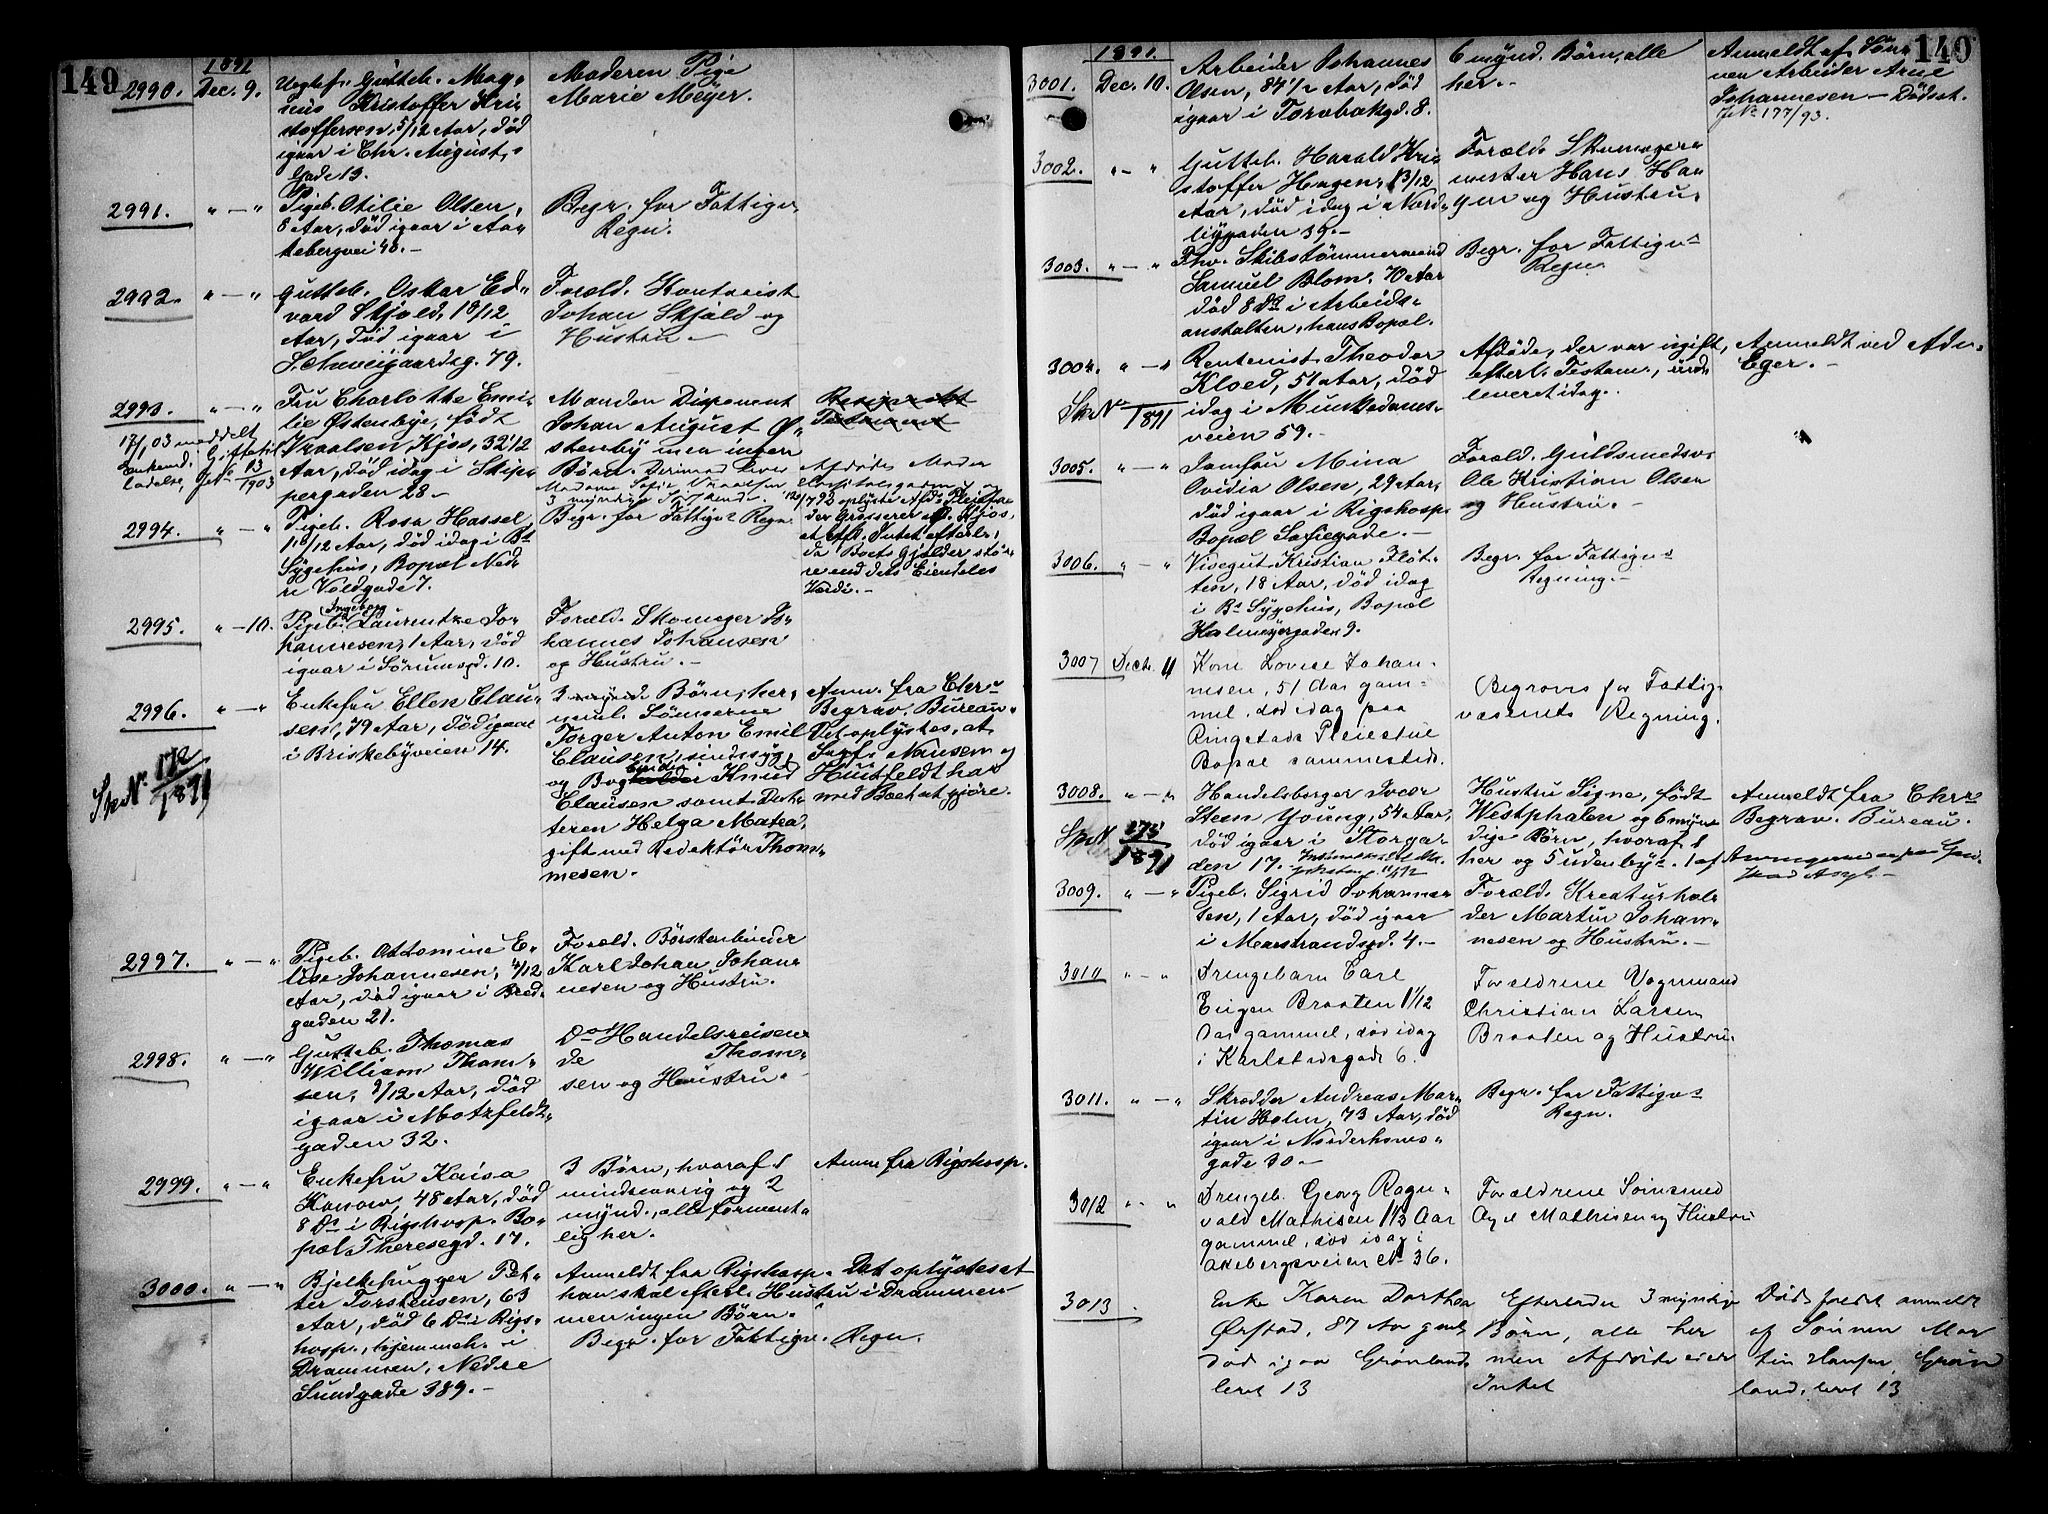 149
1891
2990. Dec. 9. Uegtef. Gutteb. Mag-
nus Kristoffer Kri-
stoffersen, 5/12 Aar, død
igaar i Chr. August-
Gade 13.
Moderen Pige
Marie Meyer.
2991. " — " Pigeb. Otilie Olsen,
8 Aar, død igaar i Aa-
kebergvei 48. —
Begr. for Fattigv.
Regn.
2992. " — " Gutteb. Oskar Ed-
vard Skjold, 10/12
Aar, død igaar i
Schweigaardsg. 79.
Foræld. Kontorist
Johan Skjold og
Hustru —
2993. " — " Fru Charlotthe Emi-
lie Østenbye, født
Vraalsen Kjos, 32 1/2
Aar, død idag i Skip-
pergaden 28 —
17/1 03 meddelt
Enkemd. Giftetil-
ladelse, 1903
Manden Disponent
Johan August Ø-
stenby men ingen
Børn. Derimod lever Afdødes Moder
Madame Sofie Vraalsen
3 myndige Søskende.
Testament
oplyste Afdødes
der Grosserer Kjos,
at Intet efterl.,
da Boets Gjælder stør-
re end dets Eiendeles
Værdi. —
2994. " — " Pigeb. Rosa Hassel
10/12 Aar, død idag i Bs
Sygehus, Bopæl Ned-
re Voldgade 7.
Begr. for Fattigvs Regn.
2995. " — 10. Pigeb. Ingeborg Laurentze Jo-
hannesen, 1 Aar, død
igaar i Sørumsgd. 10.
Foræld. Skomager Jo-
hannes Johansen
og Hustru. —
2996. " — " Enkefru Ellen Clau-
sen, 79 Aar, død igaar
i Briskebyveien 14.
Sk. No. 172/1891
3 mynd. Børn, her,
neml. Sønnerne
Jørger Anton Emil
Clausen, sindssyg,
og Bogbinder Knud
Clausen samt Dat-
teren Helga Matea,
gift med Redaktør Thom-
mesen.
Anm. fra Chr.
Begrav. Bureau.
Det oplystes, at
Sagf. Nansen og
Huitfeldt har
med Boet at gjøre.
2997. " — " Pigeb. Ottomine E-
lise Johannesen, 4/12
Aar, død igaar i Bred-
gaden 21.
Foræld. Børstenbinder
Karl Johan Johan-
nesen og Hustru.
2998. " — " Gutteb. Thomas
William Thom-
sen, 9/12 Aar, død
igaar i Motzfeldt-
gaden 32.
Do Handelsreisen-
de Thom-
sen og Hustru. —
2999. " — " Enkefru Kaisa
Konow, 48 Aar, død
8 Ds i Rigshosp. Bo-
pæl Theresegd. 17.
3 Børn, hvoraf 1
mindreaarig og 2
mynd., alle forment-
lig her.
Anm fra Rigshosp.
3000. " — " Bjelkehugger Pet-
ter Torstensen, 63
Aar, død 6 Ds i Rigs-
hosp., hjemmeh. i
Drammen, Nedre
Sundgade 389. —
Anmeldt fra Rigshosp. Det oplystes at
han skal efterl. Hustru i Drammen
men ingen Børn.
Begr. for Fattigv. Regn.
140
1891.
3001. Dec. 10. Arbeider Johannes
Olsen, 84 1/2 Aar, død
igaar i Torvbakgd. 8.
6 mynd. Børn, alle
her. —
Anmeldt af Søn-
nen Arbeider Arne
Johannesen — Dødsat.
J.No 177/93.
3002. " — " Gutteb. Harald Kri-
stoffer Hagen, 13/12
Aar, død idag i Nord-
bygaden 39. —
Foræld. Skomager-
mester Hans Ha-
gen og Hustru.
3003. " — " Fhv. Skibstømmermand
Samuel Blom, 70 Aar
død 8 Ds i Arbeids-
anstalten, hans Bopæl.
Begr. for Fattigvs
Regn.
3004. " — " Rentenist Theodor
Kloed, 51 Aar, død
idag i Munkedams-
veien 59. —
Sk. No /1891
Afdøde, der var ugift,
efterl. Testam., ind-
leveret idag.
Anmeldt ved Adv.
Eger. —
3005. " — " Jomfru Mina
Ovidia Olsen, 29 Aar,
død igaar i Rigshosp.
Bopæl Sofiegade. —
Foræld. Guldsmedsv.
Ole Kristian Olsen
og Hustru. —
3006. " — " Visegut Kristian Fløt-
ten, 18 Aar, død idag
i Bs Sygehus, Bopæl
Holmeyergaden 9.
Begr. for Fattigvs
Regning. —
3007 Decbr. 11 Kone Lovise Johan-
nesen, 51 Aar gam-
mel, død idag paa
Ringstads Pleiestue
Bopæl sammesteds.
Begraves for Fattig-
væsenets Regning.
3008. " — " Handelsborger Iver
Steen Young, 54 Aar,
død igaar i Storga-
den 17.
Sk. No 173/1891
Hustru Signe, født
Westphalen og 6 myn-
dige Børn, hvoraf 1
her og 5 udenbys. 1 af
Anmeldt fra Chr.
Begrav. Bureau.
3009. " — " Pigeb. Sigrid Johanne-
sen, 1 Aar, død igaar
i Marstrandsgd. 4. —
Foræld. Kreaturhol-
der Martin Johan-
nesen og Hustru. —
3010 " — " Drengebarn Carl
Eugen Braaten 1 1/12
Aar gammel, død idag
i Karlstadsgade 6.
Forældrene Vognmand
Christian Larsen
Braaten og Hustru.
3011. " — " Skrædder Andreas Mar-
tin Holm, 73 Aar, død
igaar i Norderhoves-
gade 30. —
Begr. for Fattigvs
Regn.
3012 " - " Drengeb. Georg Ragn-
vald Mathisen 1 1/3 Aar
gammel, død idag i
Akebergsveien No 36.
Forældrene Snismed
Axel Mathisen og Hustru
3013 Enke Karen Dorthea
Ørstad, 87 Aar gml,
død igaar Grønlands
leret 13
Efterlader 3 myndige
Børn, alle her
men Afdøde eier
Intet
Dødsfaldet anmeldt
af Sønnen Mar
tin Hansen Grøn
lands leret 13